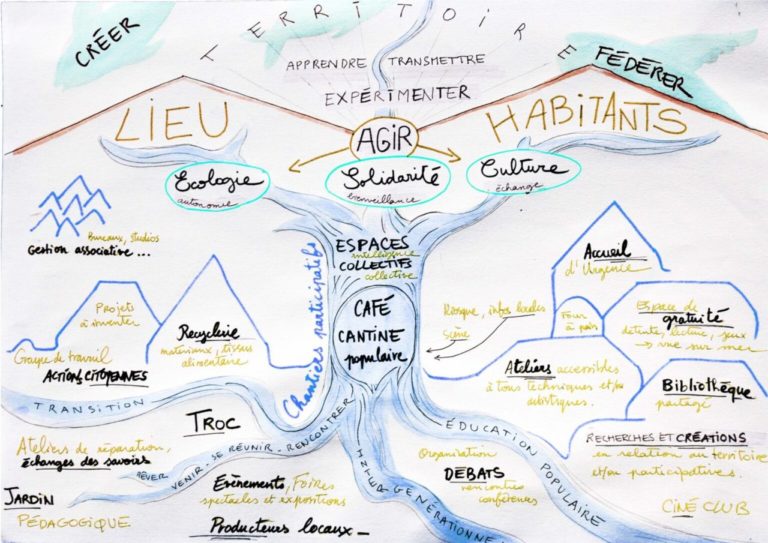 CRÉER
TERRITOIRE
FÉDÉRER
APPRENDRE TRANSMETTRE
EXPÉRIMENTER
LIEU
AGIR
HABITANTS
Ecologie
autonomie
Solidarité
bienveillance
Culture
échange
Bureaux, studios
Gestion associative ...
ESPACES
intelligence
COLLECTIFS
collective
CAFÉ
CANTINE
populaire
Chantiers participatifs
Accueil
d'Urgence
Projets
à inventer
Groupe de travail
ACTIONS CITOYENNES
Recyclerie
materiaux, tissus
alimentaire
Kiosque, infos locales
Scène
Four
à pain
Espace de
gratuité
détente, lecture, jeux
→ vue sur mer
Ateliers accessibles
à tous techniques et/ou
artistiques.
Bibliothèque
partagé
TRANSITION
TROC
Ateliers de réparation,
échanges des savoirs
RÊVER VENIR - SE RÉUNIR - RENCONTRER
JARDIN
PÉDAGOGIQUE
Evènements, Foires
spectacles et expositions
Producteurs locaux _
INTERGÉNÉRATIONNEL
Organisation
DÉBATS
rencontres
conférences
ÉDUCATION POPULAIRE
RECHERCHES ET CRÉATIONS
en relation au territoire
et/ou participatives.
CINÉ CLUB